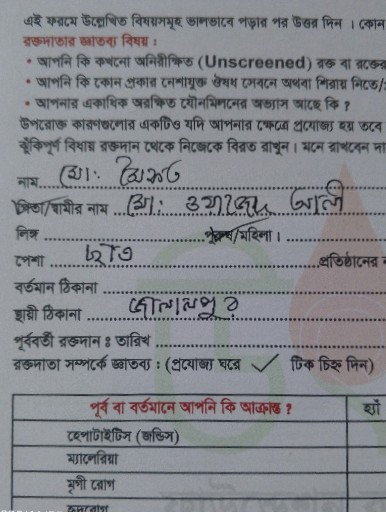 এই ফরমে উল্লেখিত বিষয়সমূহ ভালভাবে পড়ার পর উত্তর দিন । কোন
রক্তদাতার জ্ঞাতব্য বিষয় :
• আপনি কি কখনো অনিরীক্ষিত (Unscreened) রক্ত বা রক্তের
• আপনি কি কোন প্রকার নেশাযুক্ত ঔষধ সেবনে অথবা শিরায় নিতে/
• আপনার একাধিক অরক্ষিত যৌনমিলনের অভ্যাস আছে কি ?
উপরোক্ত কারণগুলোর একটিও যদি আপনার ক্ষেত্রে প্রযোজ্য হয় তবে
ঝুঁকিপূর্ণ বিধায় রক্তদান থেকে নিজেকে বিরত রাখুন । মনে রাখবেন
নাম মো: সৈকত
পিতা/স্বামীর নাম মো: ওয়াজেদ আলী
লিঙ্গ পুরুষ/মহিলা ।
পেশা ছাত্র প্রতিষ্ঠানের
বর্তমান ঠিকানা
স্থায়ী ঠিকানা জামালপুর
পূর্ববর্তী রক্তদান : তারিখ
রক্তদাতা সম্পর্কে জ্ঞাতব্য : (প্রযোজ্য ঘরে ✓ টিক চিহ্ন দিন)
পূর্বে বা বর্তমানে আপনি কি আক্রান্ত ? হ্যাঁ
হেপাটাইটিস (জন্ডিস)
ম্যালেরিয়া
মৃগী রোগ
হৃদরোগ